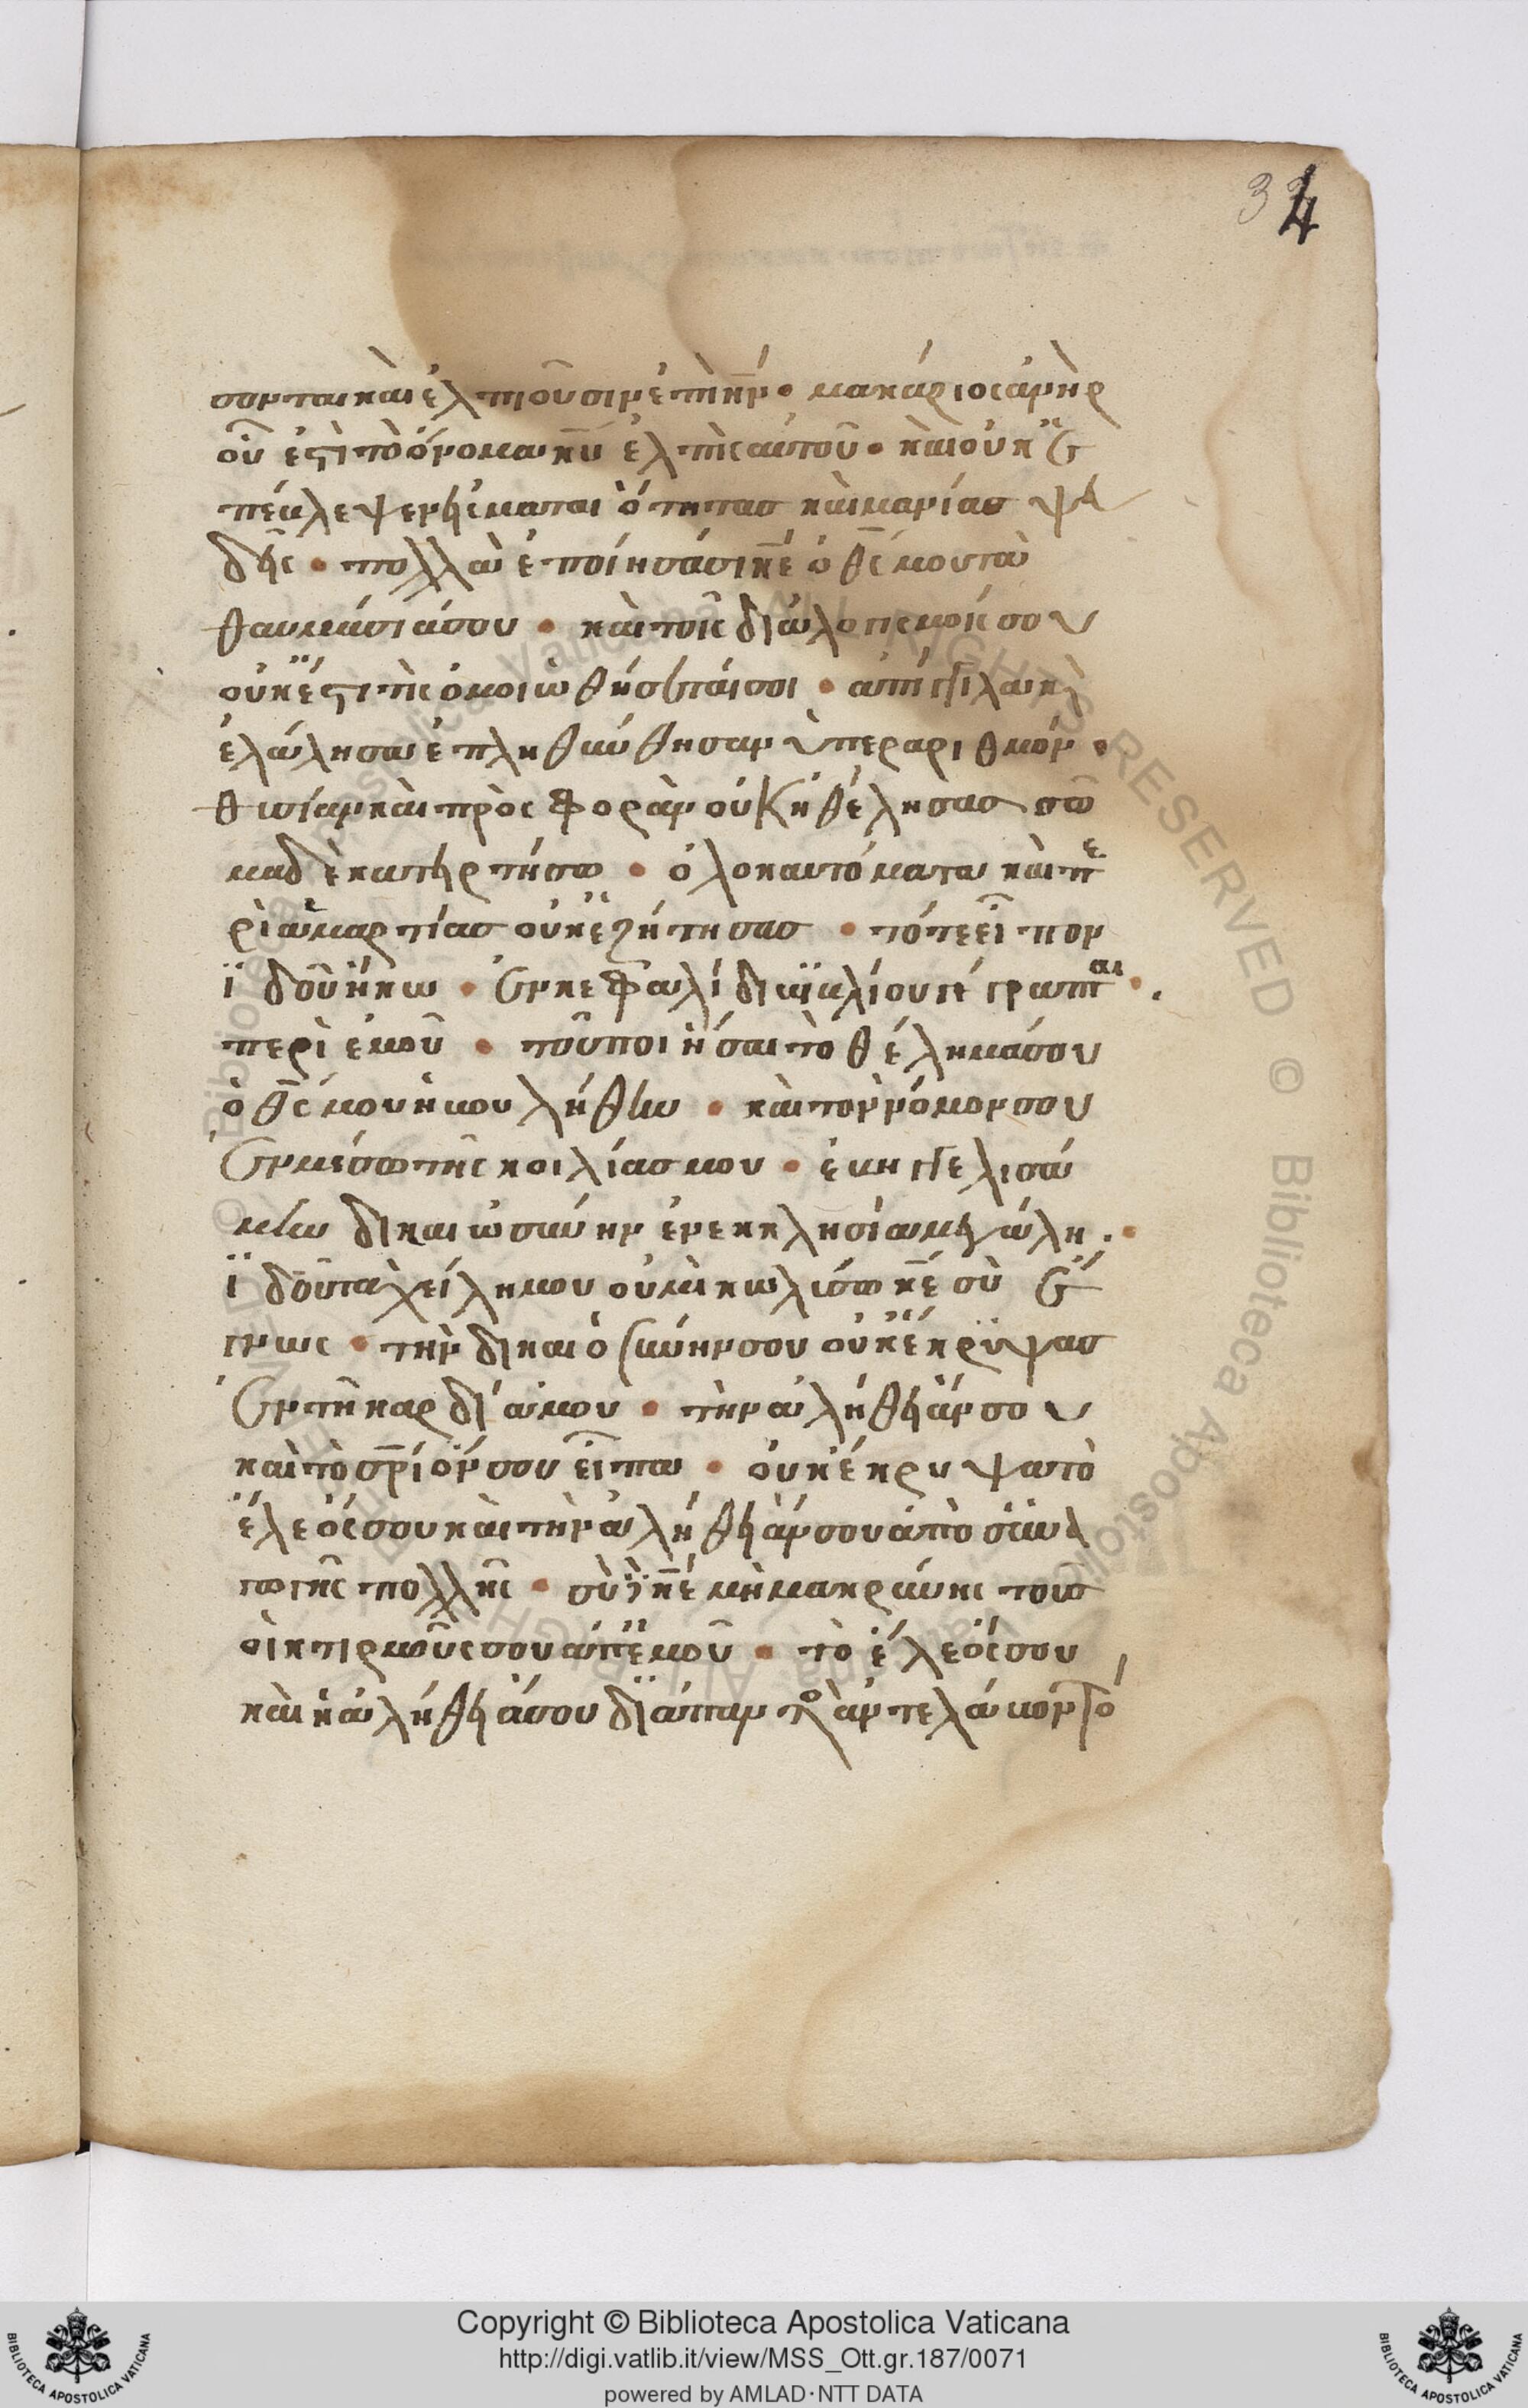 34
σονται καὶ ἐλπιοῦσιν ἐπὶ κν́ · μακάριος ἀνὴρ
οὗ ἐστὶ τὸ όνομα κυ ἐλπὶς αυτοῦ · καὶ οὐκ ἐ
πέυλεψεν εἰς ματαιὸτητας καὶ μανίας ψευ
δεῖς · πολλὰ ἐποίησάσι κε ὁ θς μου τὰ
θαυμάσιάσου · καὶ τοῖς διαλογισμοίς σου
οὐκ έστι τὶς ὁμοιωθήσεταί σοι · απήγγιλα κὶ
ἐλάλησα ἐπληθύνθησαν ὑπεραριθμόν ·
θισίαν καὶ πρὸσφορὰν οὐκ ἠθέλησας σῶ
μα δὲ κατηρτήσω · ὁλοκαυτόματα καὶ πε
ρὶ ἁμαρτίας οὐκ ἐζήτησας · τότε εἶπον
ϊδοῦ ήκω · ἐν κεφαλίδι υϊυλίου γέγραπται ·
περὶ ἐμοῦ · τοῦ ποιῆσαι τὸ θέλημάσου
ὁ θς μου ηυουλήθην · καὶ τὸν νόμον σου
ἐν μέσω τῆς κοιλίας μου · ἐυηγγελισά
μην δικαιωσύνην ἐν εκκλησία μεγάλη ·
ϊδοῦ τα χείλη μου οὐ μὴ κωλύσω κε σὺ ἔ
γνως · τὴν δικαιὸσύνην σου οὐκ έκρυψας
ἐν τῆ καρδία μου · τὴν ἀλήθειάν σου
καὶ τὸ σρίόν σου εἶπα · οὐκ έκρυψα τὸ
έλεός σου καὶ τὴν ἀλήθειάν σου ἀπὸ συνα
γωγῆς πολλῆς · σὺ δὲ κε μὴ μακρύνης τους
οἰκτιρμοῦς σου ἀπ ἐμοῦ · τὸ έλεός σου
καὶ ἡ ἀλήθειά σου διάπαντὸς ἀντελάυοντό
Copyright © Biblioteca Apostolica Vaticana
http://digi.vatlib.it/view/MSS_Ott.gr.187/0071
powered by AMLAD·NTT DATA
BIBLIOTECA APOSTOLICA VATICANA
BIBLIOTECA APOSTOLICA VATICANA